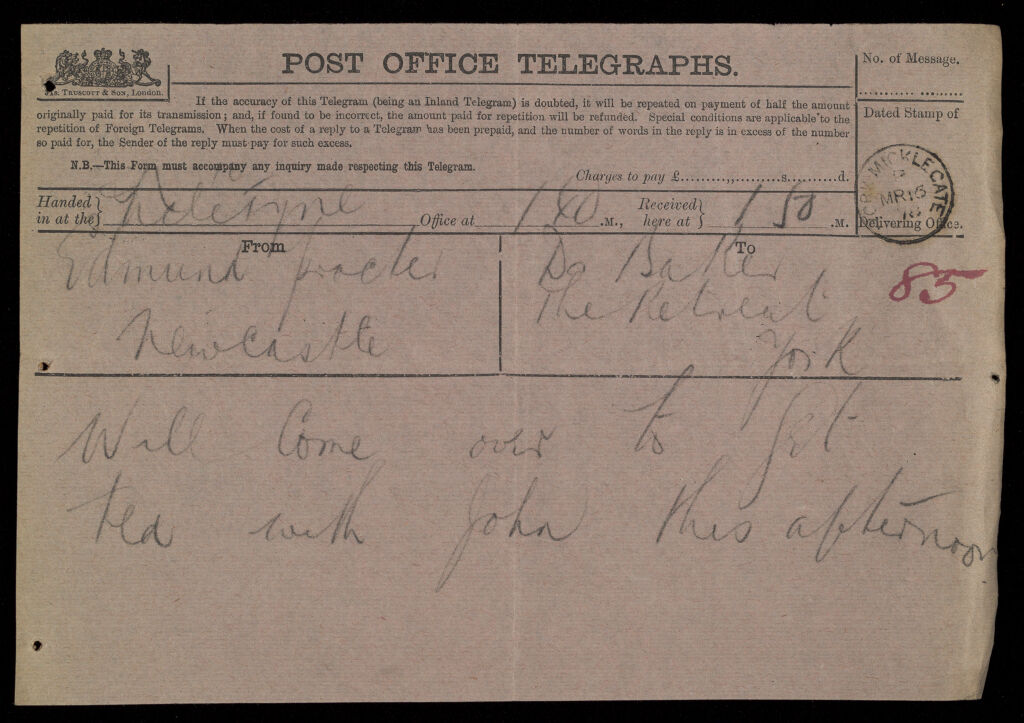 POST OFFICE TELEGRAPHS.
Jas. Truscott & Son, London.
If the accuracy of this Telegram (being an Inland Telegram) is doubted, it will be repeated on payment of half the amount
originally paid for its transmission; and, if found to be incorrect, the amount paid for repetition will be refunded. Special conditions are applicable to the
repetition of Foreign Telegrams. When the cost of a reply to a Telegram has been prepaid, and the number of words in the reply is in excess of the number
so paid for, the Sender of the reply must pay for such excess.
N.B.—This Form must accompany any inquiry made respecting this Telegram.
Charges to pay £.........,,.........s..........d.
No. of Message.
Dated Stamp of
YORK MICKLEGATE
MR 15
Delivering Office.
Handed in at the Office at 1 40 .M., Received here at 1 50 .M.
From
Edmund Procter
Newcastle
To
Dr Baker
The Retreat
York
85
Will Come over to get
tea with John this afternoon